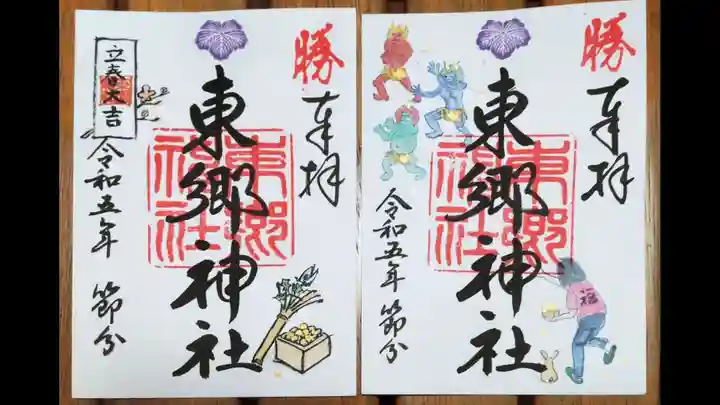 勝
奉拝
東郷神社
東郷神社
立春大吉
令和五年 節分
勝
奉拝
東郷神社
東郷神社
令和五年 節分
福